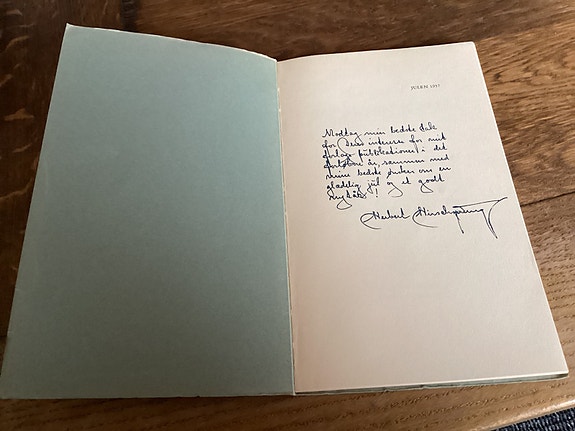 JULEN 1957
Modtag min bedste tak
for Deres interesse for mit
forlags publikationer i det
forløbne år, sammen med
mine bedste ønsker om en
glædelig jul og et godt
nytår!
Herbert